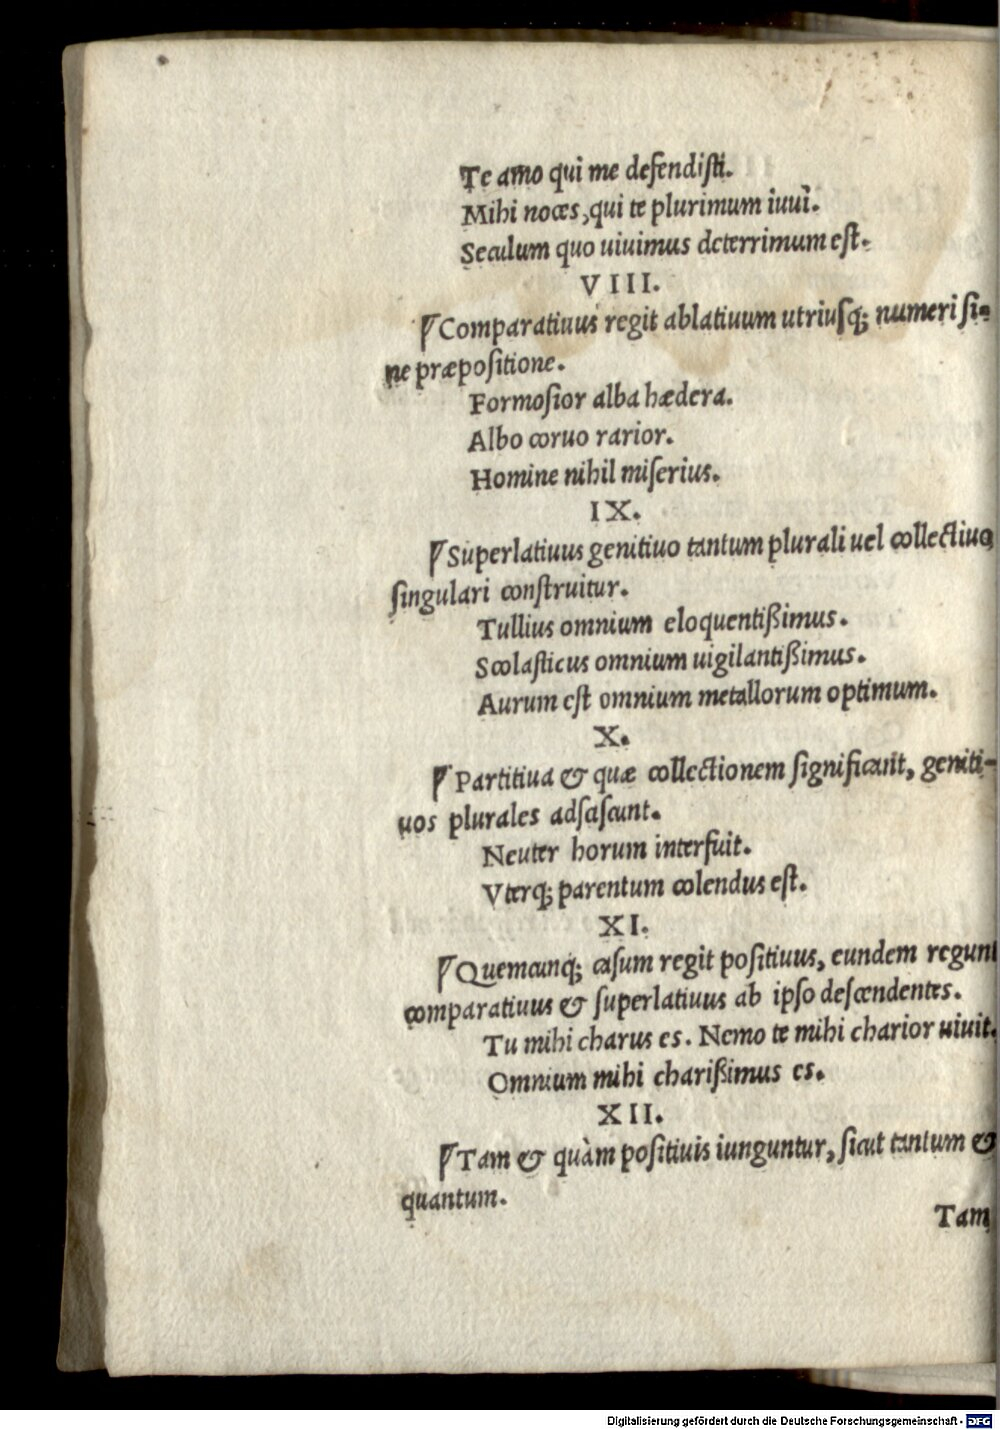 Te amo qui me defendiſti.
Mihi noces, qui te plurimum iuuĩ.
Seculum quo uiuimus deterrimum eſt.
VIII.
Comparatiuus regit ablatiuum utriuſq; numeri ſi-
ne præpoſitione.
Formoſior alba hædera.
Albo coruo rarior.
Homine nihil miſerius.
IX.
Superlatiuus genitiuo tantum plurali uel collectiuo
ſingulari conſtruitur.
Tullius omnium eloquentißimus.
Scolaſticus omnium uigilantißimus.
Aurum eſt omnium metallorum optimum.
X.
Partitiua & quæ collectionem ſignificant, geniti-
uos plurales adſciſcunt.
Neuter horum interfuit.
Vterq; parentum colendus eſt.
XI.
Quemcunq; caſum regit poſitiuus, eundem regunt
comparatiuus & ſuperlatiuus ab ipſo deſcendentes.
Tu mihi charus es. Nemo te mihi charior uiuit.
Omnium mihi charißimus es.
XII.
Tam & quàm poſitiuis iunguntur, ſicut tantum &
quantum.
Tam
Digitalisierung gefördert durch die Deutsche Forschungsgemeinschaft - DFG